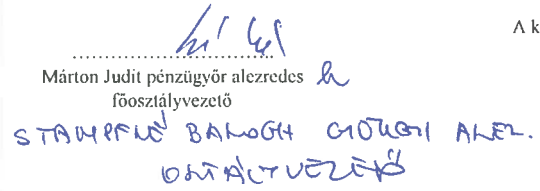 A k
Márton Judit pénzügyőr alezredes h
főosztályvezető
STAMPFNÉ BALOGH GYÖNGYI ALEZ.
OSZTÁLYVEZETŐ